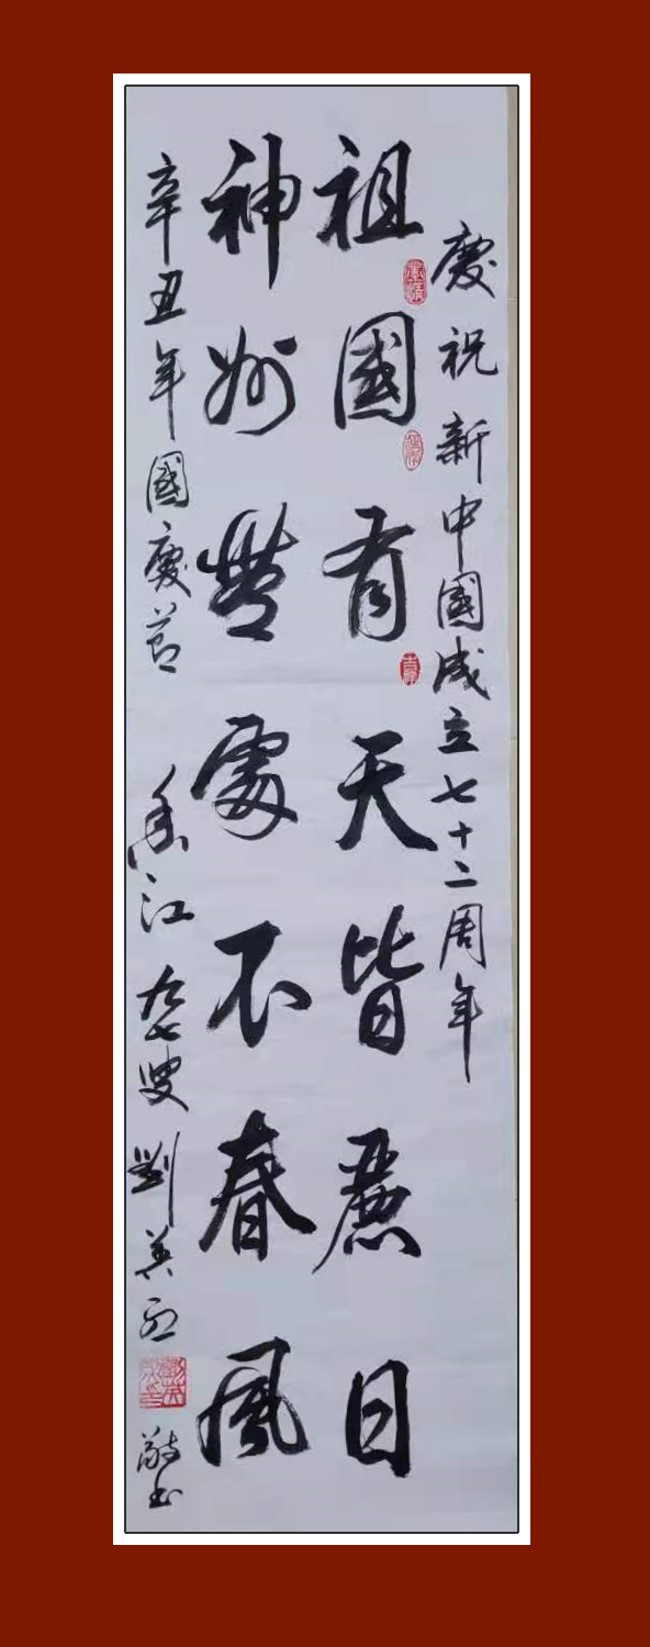 慶祝新中國成立七十二周年
祖國有天皆麗日
神州無處不春風
辛丑年國慶節 香江 九七叟 劉 敬书